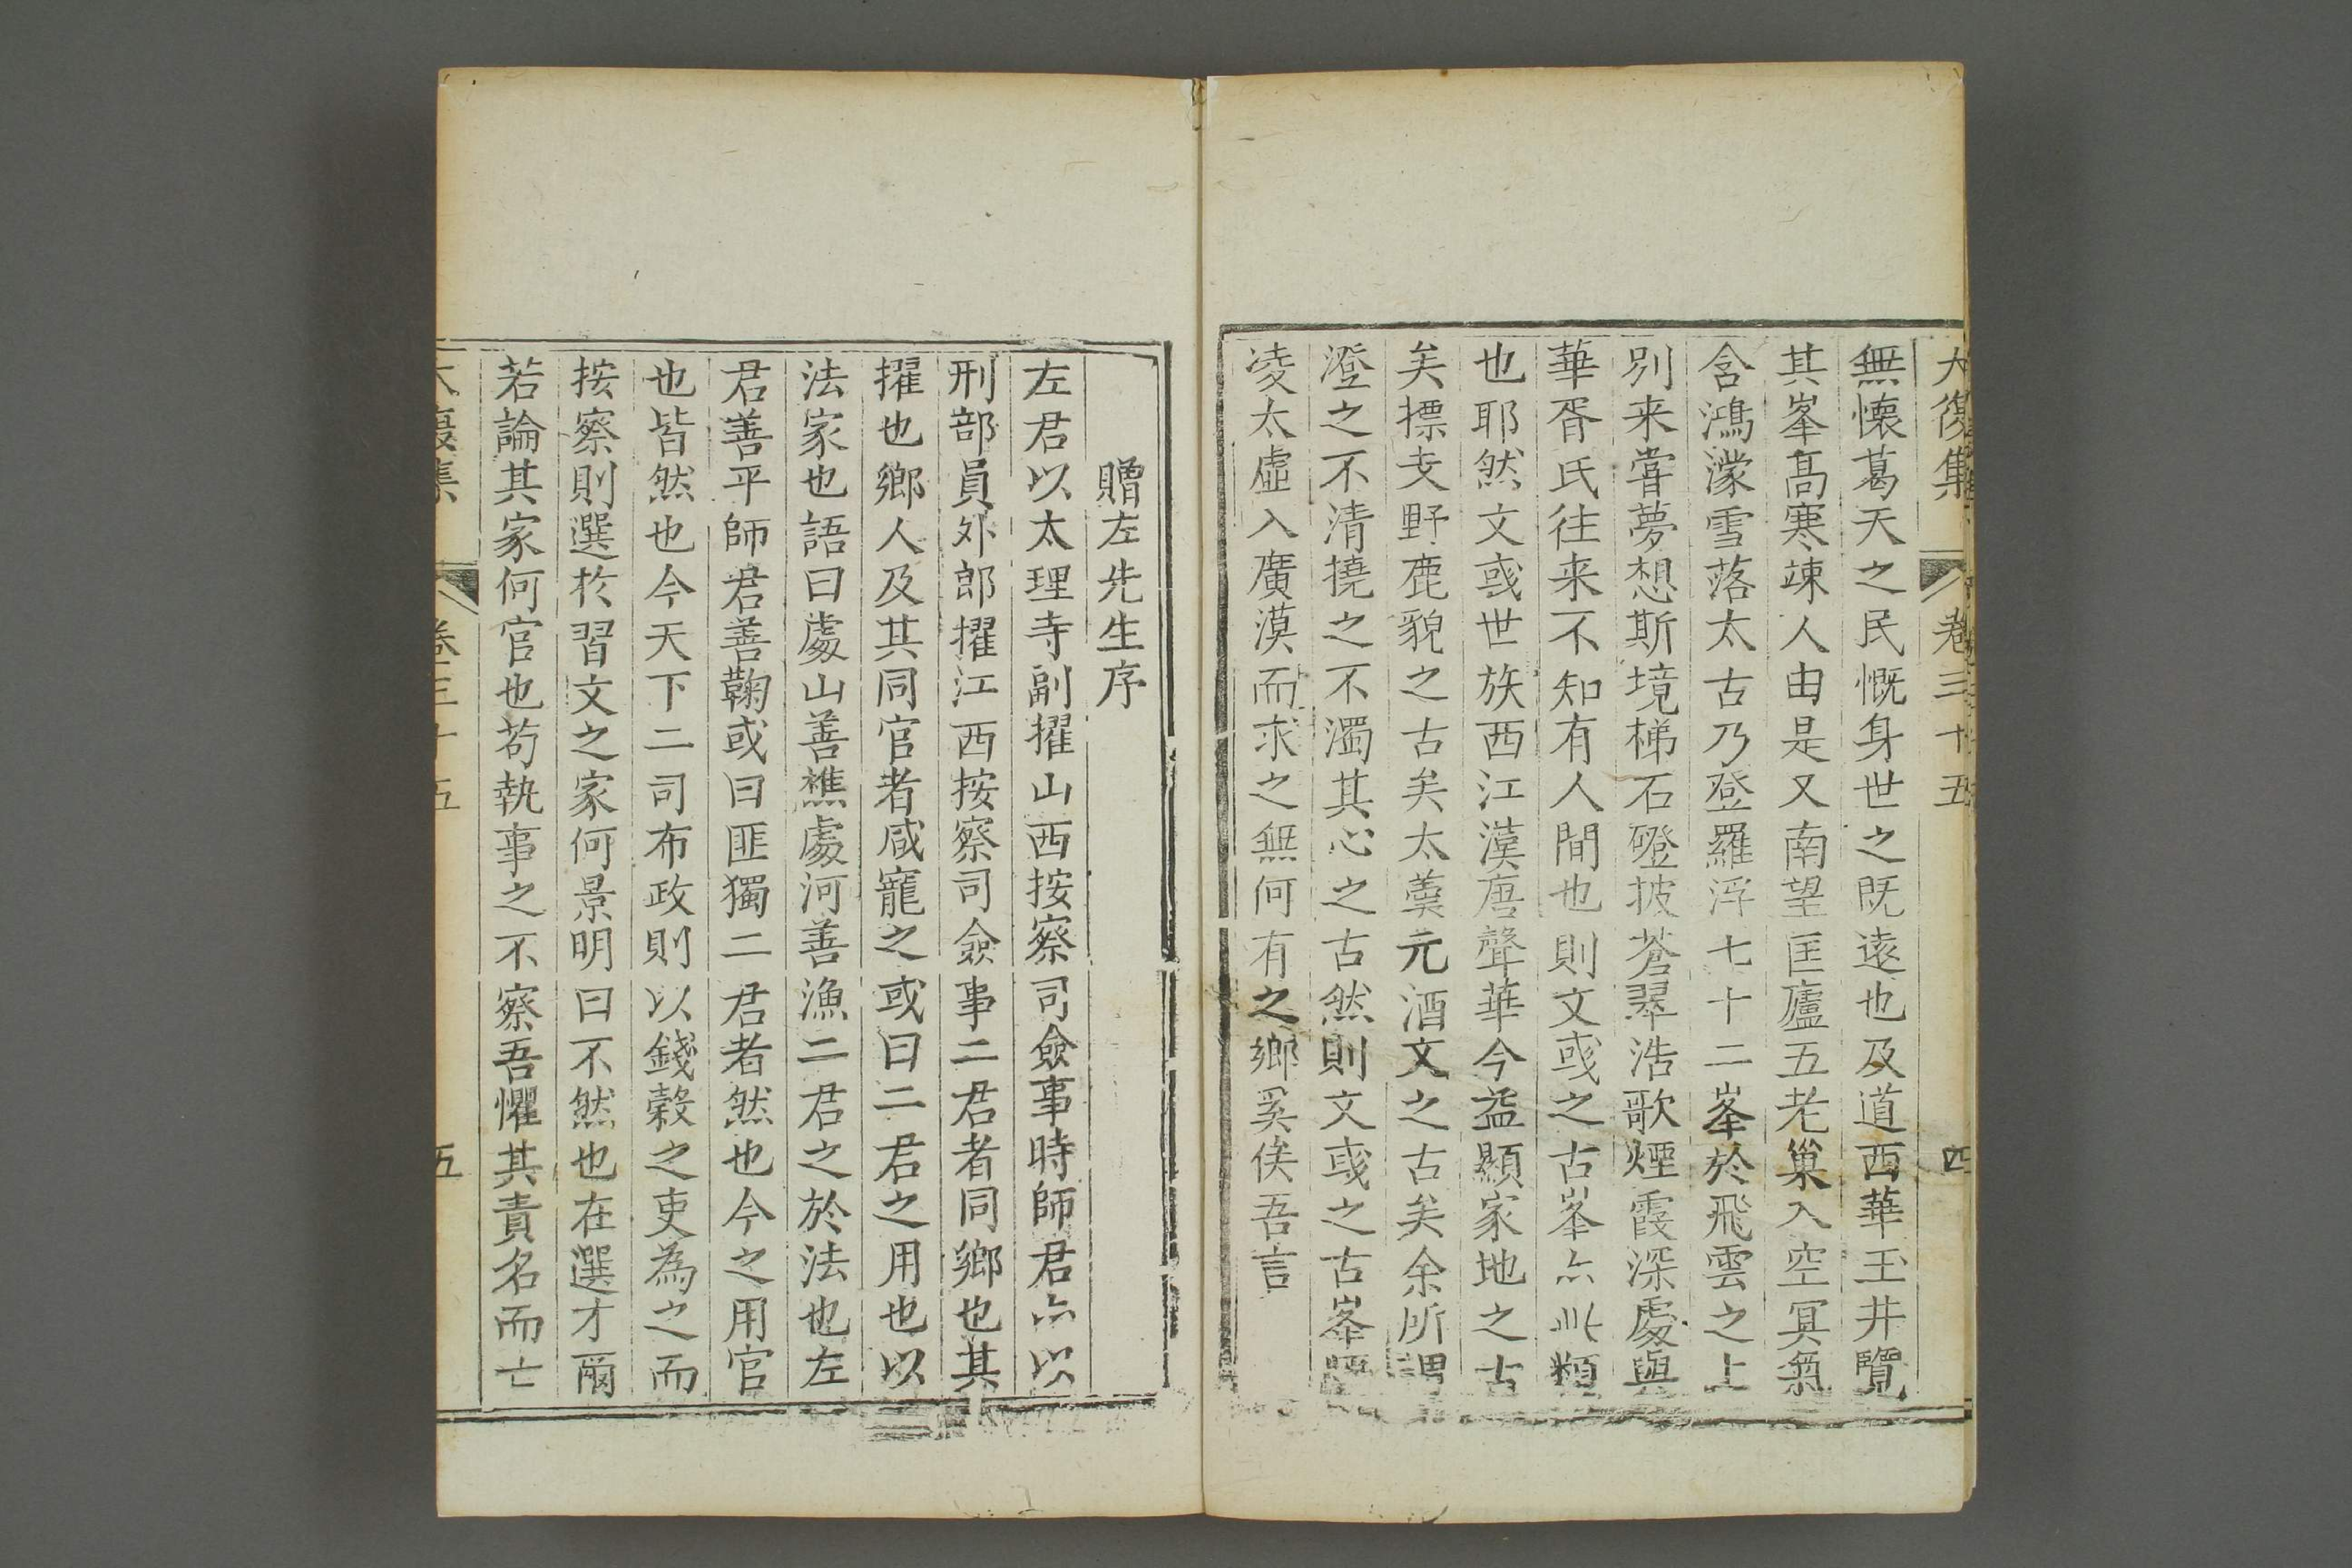 大復集 卷三十五 四
無懷葛天之民慨身世之既遠也及道西華玉井覽
其峯髙寒竦人由是又南望匡廬五老巢入空冥氣
含鴻濛雪落太古乃登羅浮七十二峯於飛雲之上
別来嘗夢想斯境梯石磴披蒼翠浩歌煙霞深處與
華胥氏往来不知有人間也則文彧之古峯亦此類
也耶然文彧世族西江漢唐聲華今益顯家地之古
矣摽支野鹿貌之古矣太羹元酒文之古矣余所謂
澄之不清撓之不濁其心之古然則文彧之古峯
凌太虛入廣漠而求之無何有之鄉奚俟吾言
贈左先生序
左君以太理寺副擢山西按察司僉事時師君亦以
刑部員外郎擢江西按察司僉事二君者同鄉也其
擢也鄉人及其同官者咸寵之或曰二君之用也以
法家也語曰處山善樵處河善漁二君之於法也左
君善平師君善鞫或曰匪獨二君者然也今之用官
也皆然也今天下二司布政則以錢穀之吏為之而
按察則選於習文之家何景明曰不然也在選才爾
若論其家何官也苟執事之不察吾懼其責名而亡
大復集 卷三十五 五